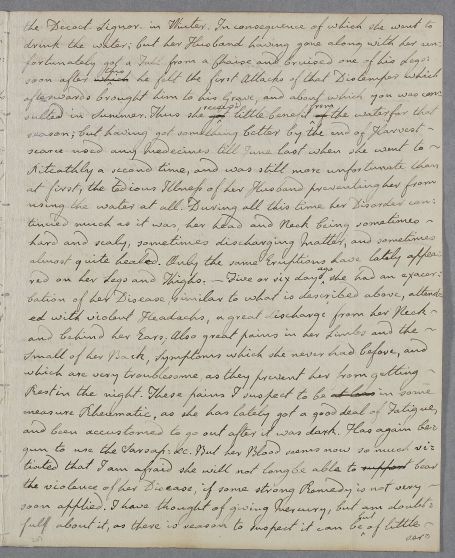 the Decoct. Lignor. in Winter. In consequence of which she went to
drink the water; but her Husband having gone along with her un-
fortunately got a Fall from a Chaise and bruised one of his Legs:
soon after this he felt the first Attacks of that Distemper which
afterwards brought him to his Grave, and about which you was con-
sulted in Summer. Thus she received little benefit from the water for that
season; but having got something better by the end of Harvest -
scarce used any Medecines till June last when she went to -
Pitcathly a second time, and was still more unfortunate than
at first, the tedious Illness of her Husband preventing her from
using the water at all. During all this time her Disorder con-
tinued much as it was, her head and Neck being sometimes -
hard and scaly, sometimes discharging Matter, and sometimes
almost quite healed. Only the same Eruptions have lately appea-
red on her Legs and Thighs. - Five or six days ago she had an exacer-
bation of her Disease, similar to what is described above, attend-
ed with violent Headachs, a great discharge from her Neck -
and behind her Ears. Also great pains in her Limbs and the -
Small of her Back, Symptoms which she never had before, and
which are very troublesome, as they prevent her from getting -
Rest in the night. These pains I suspect to be in some
measure Rheumatic, as she has lately got a good deal of Fatigue,
and been accustomed to go out after it was dark. Has again be-
gun to use the Sarsap: &c. But her Blood seems now so much vi-
tiated that I am afraid she will not long be able to support bear
the violence of her Disease, if some strong Remedy is not very -
soon applied. I have thought of giving Mercury, but am doubt-
full about it, as there is reason to suspect it can be of little -
ser=